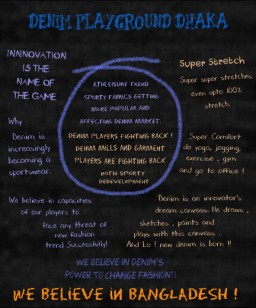 DENIM PLAYGROUND DHAKA
INNNOVATION
IS THE
NAME OF
THE GAME
Why
Denim is
increasingly
becoming a
sportwear.
ATHLEISURE TREND
SPORTY FABRICS GETTING
MORE POPULAR AND
AFFECTING DENIM MARKET.
DENIM PLAYERS FIGHTING BACK !
DENIM MILLS AND GARMENT
PLAYERS ARE FIGHTING BACK
WITH SPORTY
DEDEVELOPMENT
Super Stretch
Super super stretches
even upto 100%
stretch
Super Comfort
do yoga, jogging,
exercise , gym
and go to office !
We believe in capacities
of our players to
Face any threat of
new fashion
trend Successfully!
Denim is an innovator's
dream canvass. He draws ,
sketches , paints and
plays with this canvass .
And Lo ! new denim is born !!
WE BELIEVE IN DENIM'S
POWER TO CHANGE FASHION!!
WE BELIEVE iN BANGLADESH !